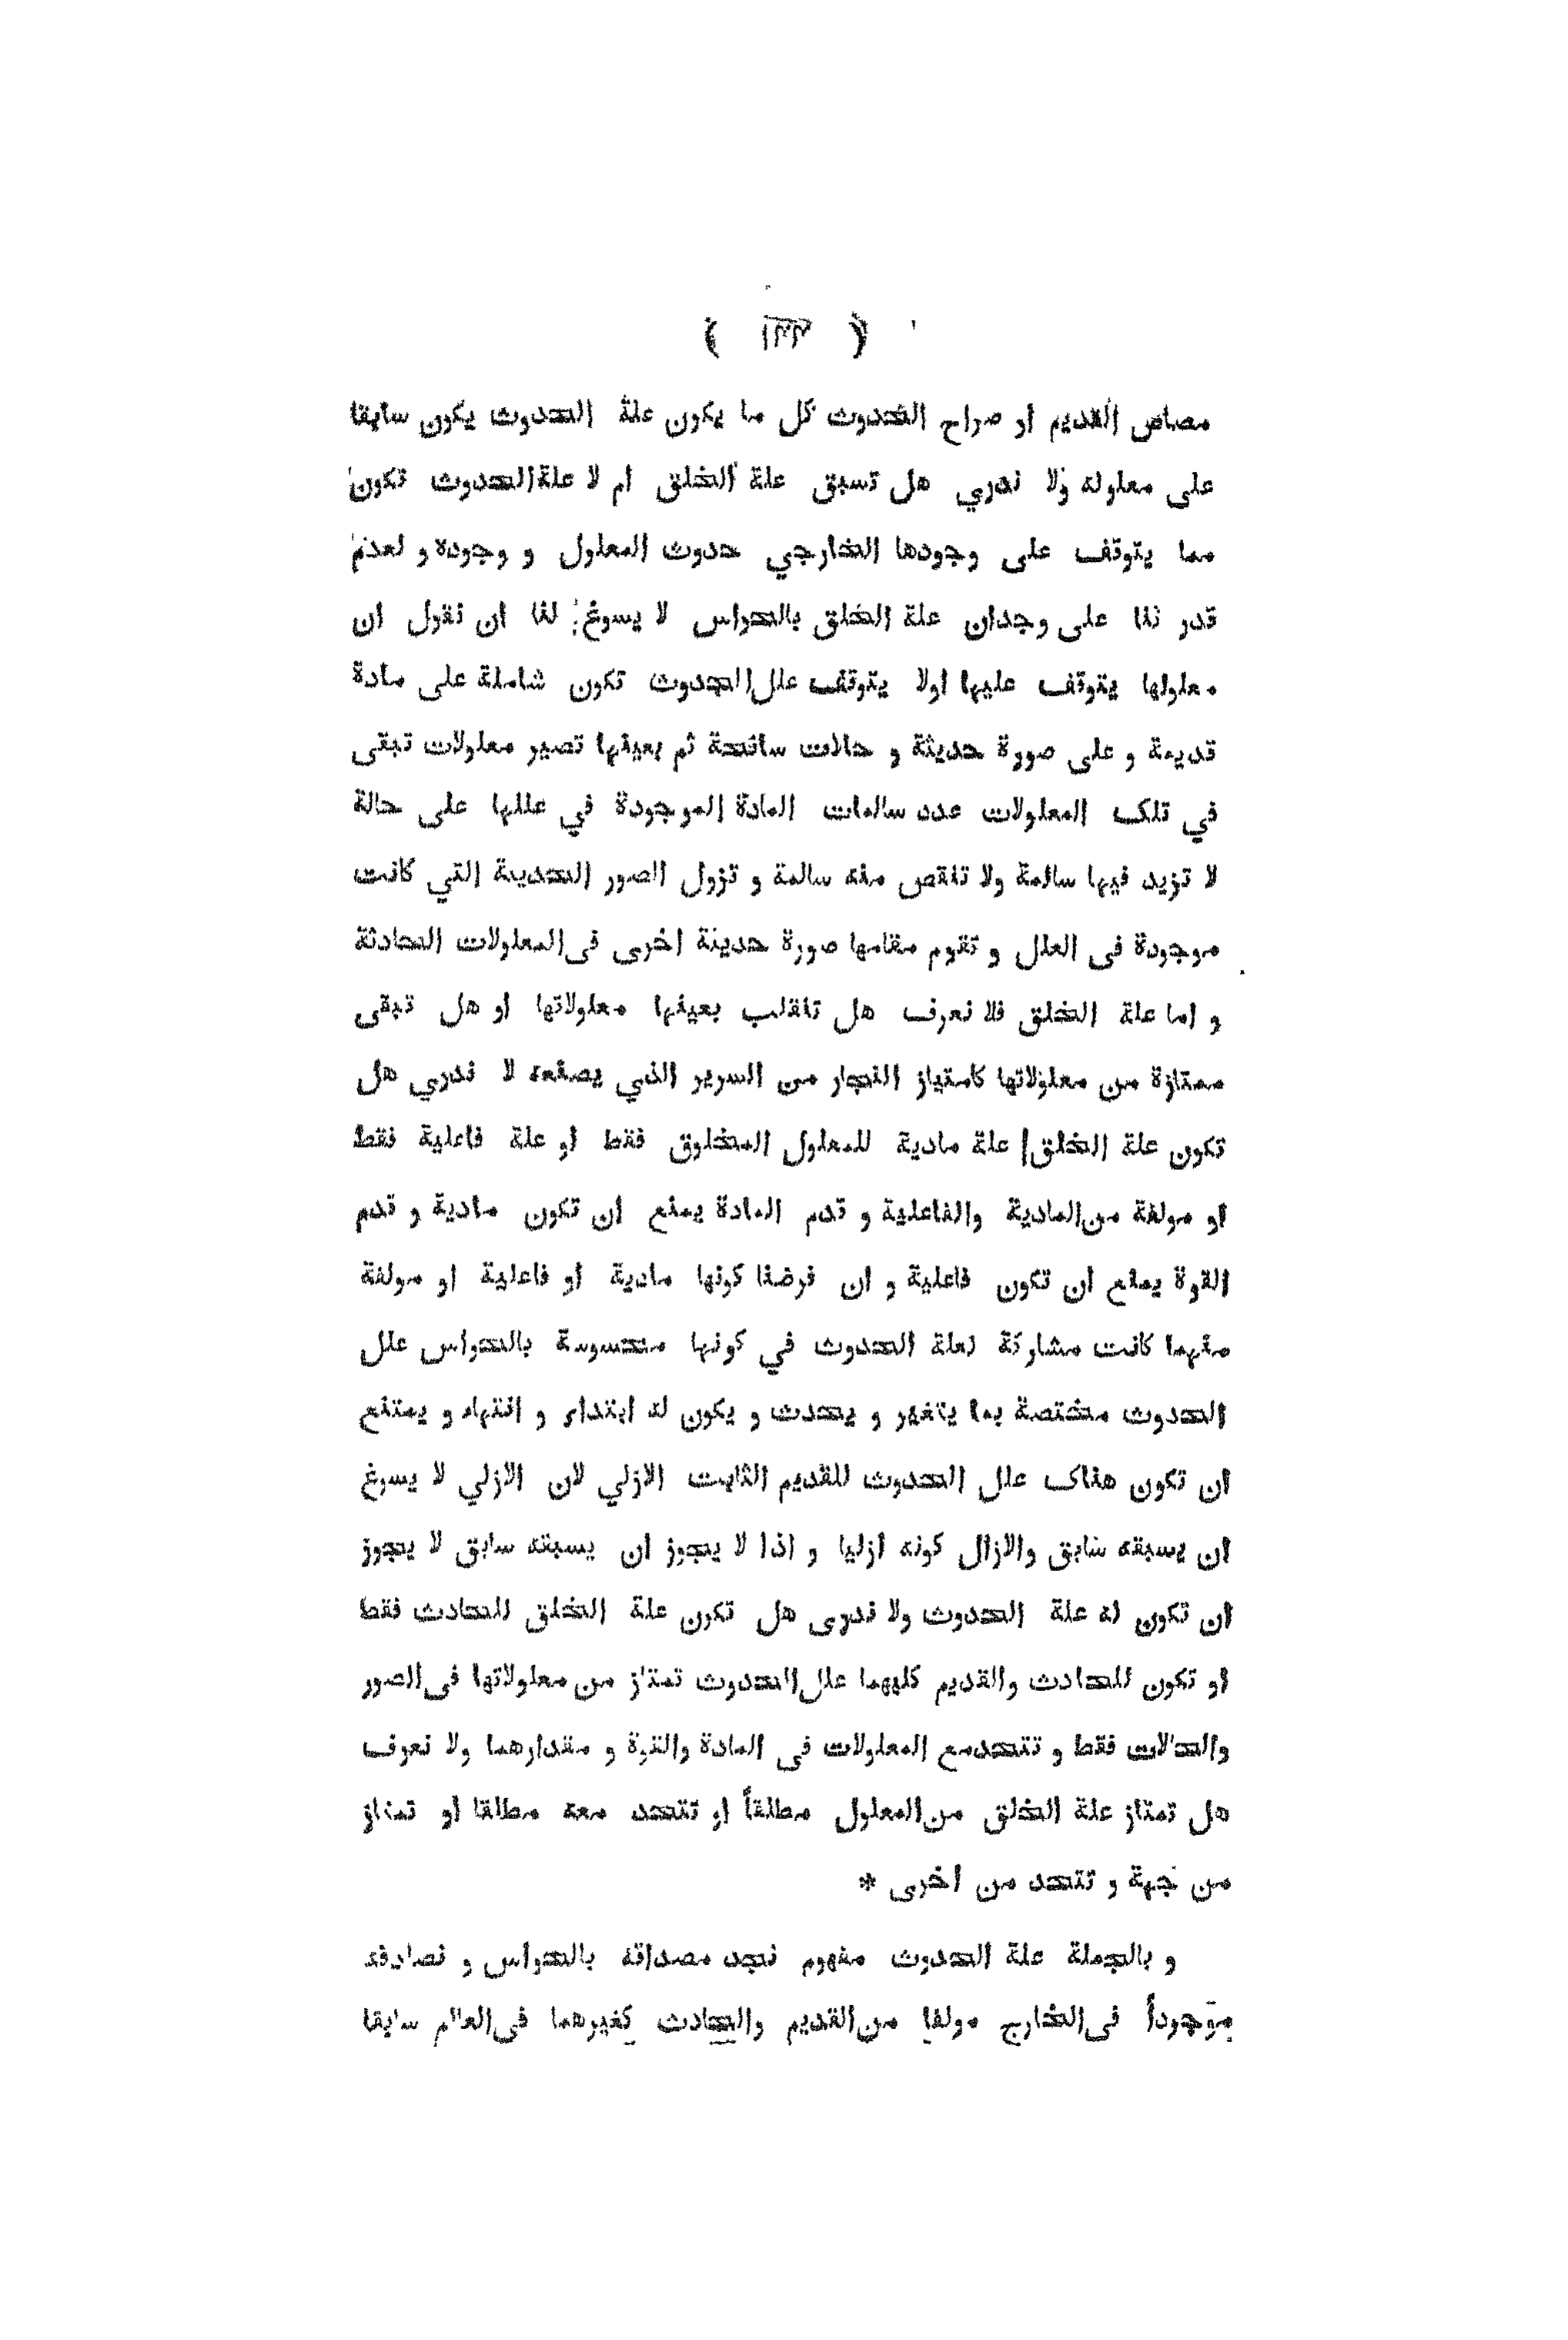 مصاص القديم او صراح الحدوث كل ما يكون علة الحدوث يكون سابقا
على معلوله ولا ندري هل تسبق علة الخلق ام لا علة الحدوث تكون
مما يتوقف على وجودها الخارجي حدوث المعلول و وجوده و لعدم
قدر تنا على وجدان علة الخلق بالحواس لا يسوغ لنا ان نقول ان
معلولها يتوقف عليها اولا يتوقف علل الحدوث تكون شاملة على مادة
قديمة و على صورة حديثة و حالات سانحة ثم بعينها تصير معلولات تبقى
في تلك المعلولات عدد سالمات المادة الموجودة في عللها على حالة
لا تزيد فيها سالمة ولا تنقص منه سالمة و تزول الصور الحديثة التي كانت
موجودة فى العلل و تقوم مقامها صورة حديثة اخرى فى المعلولات الحادثة
و اما علة الخلق فلا نعرف هل تنقلب بعينها معلولاتها او هل تبقى
ممتازة من معلولاتها كامتياز النجار من السرير الذي يصنعه لا ندري هل
تكون علة الخلق علة مادية للمعلول المخلوق فقط او علة فاعلية فقط
او مولفة من المادية والفاعلية و قدم المادة يمنع ان تكون مادية و قدم
القوة يمنع ان تكون فاعلية و ان فرضنا كونها مادية او فاعلية او مولفة
منهما كانت مشاركة لعلة الحدوث في كونها محسوسة بالحواس علل
الحدوث مختصة بما يتغير و يحدث و يكون له ابتداء و انتهاء و يمتنع
ان تكون هناك علل الحدوث للقديم الثابت الازلي لان الازلي لا يسوغ
ان يسبقه سابق والازال كونه ازليا و اذا لا يجوز ان يسبقه سابق لا يجوز
ان تكون له علة الحدوث ولا ندرى هل تكون علة الخلق للحادث فقط
او تكون للحادث والقديم كليهما علل الحدوث تمتاز من معلولاتها فى الصور
والحالات فقط و تتحدمع المعلولات فى المادة والقوة و مقدارهما ولا نعرف
هل تمتاز علة الخلق من المعلول مطلقاً او تتحد معه مطلقا او تمتاز
من جهة و تتحد من اخرى *
و بالجملة علة الحدوث مفهوم نجد مصداقه بالحواس و نصادفه
موجوداً فى الخارج مولفا من القديم والحادث كغيرهما فى العالم سابقا